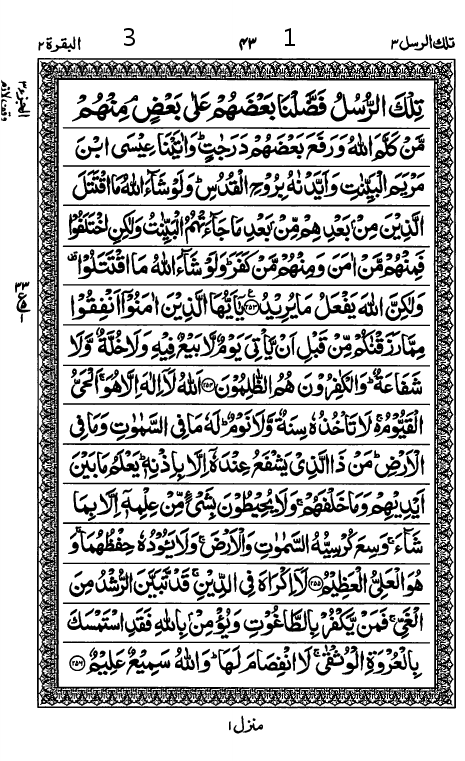 تلك الرسل ٣ 1 ٤٣ 3 البقرة ٢
تِلْكَ الرُّسُلُ فَضَّلْنَا بَعْضَهُمْ عَلٰى بَعْضٍ ۘ مِنْهُمْ
مَّنْ كَلَّمَ اللّٰهُ وَرَفَعَ بَعْضَهُمْ دَرَجٰتٍ ؕ وَاٰتَيْنَا عِيْسَى ابْنَ
مَرْيَمَ الْبَيِّنٰتِ وَاَيَّدْنٰهُ بِرُوْحِ الْقُدُسِ ؕ وَلَوْ شَآءَ اللّٰهُ مَا اقْتَتَلَ
الَّذِيْنَ مِنْۢ بَعْدِهِمْ مِّنْۢ بَعْدِ مَا جَآءَتْهُمُ الْبَيِّنٰتُ وَلٰكِنِ اخْتَلَفُوْا
فَمِنْهُمْ مَّنْ اٰمَنَ وَمِنْهُمْ مَّنْ كَفَرَ ؕ وَلَوْ شَآءَ اللّٰهُ مَا اقْتَتَلُوْا ۫
وَلٰكِنَّ اللّٰهَ يَفْعَلُ مَا يُرِيْدُ ﴿٢٥٣﴾ ع يٰۤاَيُّهَا الَّذِيْنَ اٰمَنُوْۤا اَنْفِقُوْا
مِمَّا رَزَقْنٰكُمْ مِّنْ قَبْلِ اَنْ يَّاْتِيَ يَوْمٌ لَّا بَيْعٌ فِيْهِ وَلَا خُلَّةٌ وَّلَا
شَفَاعَةٌ ؕ وَالْكٰفِرُوْنَ هُمُ الظّٰلِمُوْنَ ﴿٢٥٤﴾ اَللّٰهُ لَاۤ اِلٰهَ اِلَّا هُوَ ۚ اَلْحَيُّ
الْقَيُّوْمُ ۚ لَا تَاْخُذُهٗ سِنَةٌ وَّلَا نَوْمٌ ؕ لَهٗ مَا فِي السَّمٰوٰتِ وَمَا فِي
الْاَرْضِ ؕ مَنْ ذَا الَّذِيْ يَشْفَعُ عِنْدَهٗۤ اِلَّا بِاِذْنِهٖ ؕ يَعْلَمُ مَا بَيْنَ
اَيْدِيْهِمْ وَمَا خَلْفَهُمْ ۚ وَلَا يُحِيْطُوْنَ بِشَيْءٍ مِّنْ عِلْمِهٖۤ اِلَّا بِمَا
شَآءَ ۚ وَسِعَ كُرْسِيُّهُ السَّمٰوٰتِ وَالْاَرْضَ ۚ وَلَا يَـُٔوْدُهٗ حِفْظُهُمَا ۚ وَ
هُوَ الْعَلِيُّ الْعَظِيْمُ ﴿٢٥٥﴾ لَاۤ اِكْرَاهَ فِي الدِّيْنِ ۙ قَدْ تَّبَيَّنَ الرُّشْدُ مِنَ
الْغَيِّ ۚ فَمَنْ يَّكْفُرْ بِالطَّاغُوْتِ وَيُؤْمِنْۢ بِاللّٰهِ فَقَدِ اسْتَمْسَكَ
بِالْعُرْوَةِ الْوُثْقٰى ۗ لَا انْفِصَامَ لَهَا ؕ وَاللّٰهُ سَمِيْعٌ عَلِيْمٌ ﴿٢٥٦﴾
الجزء ٣
وقف لازم
٣٣
ع
١
منزل ١